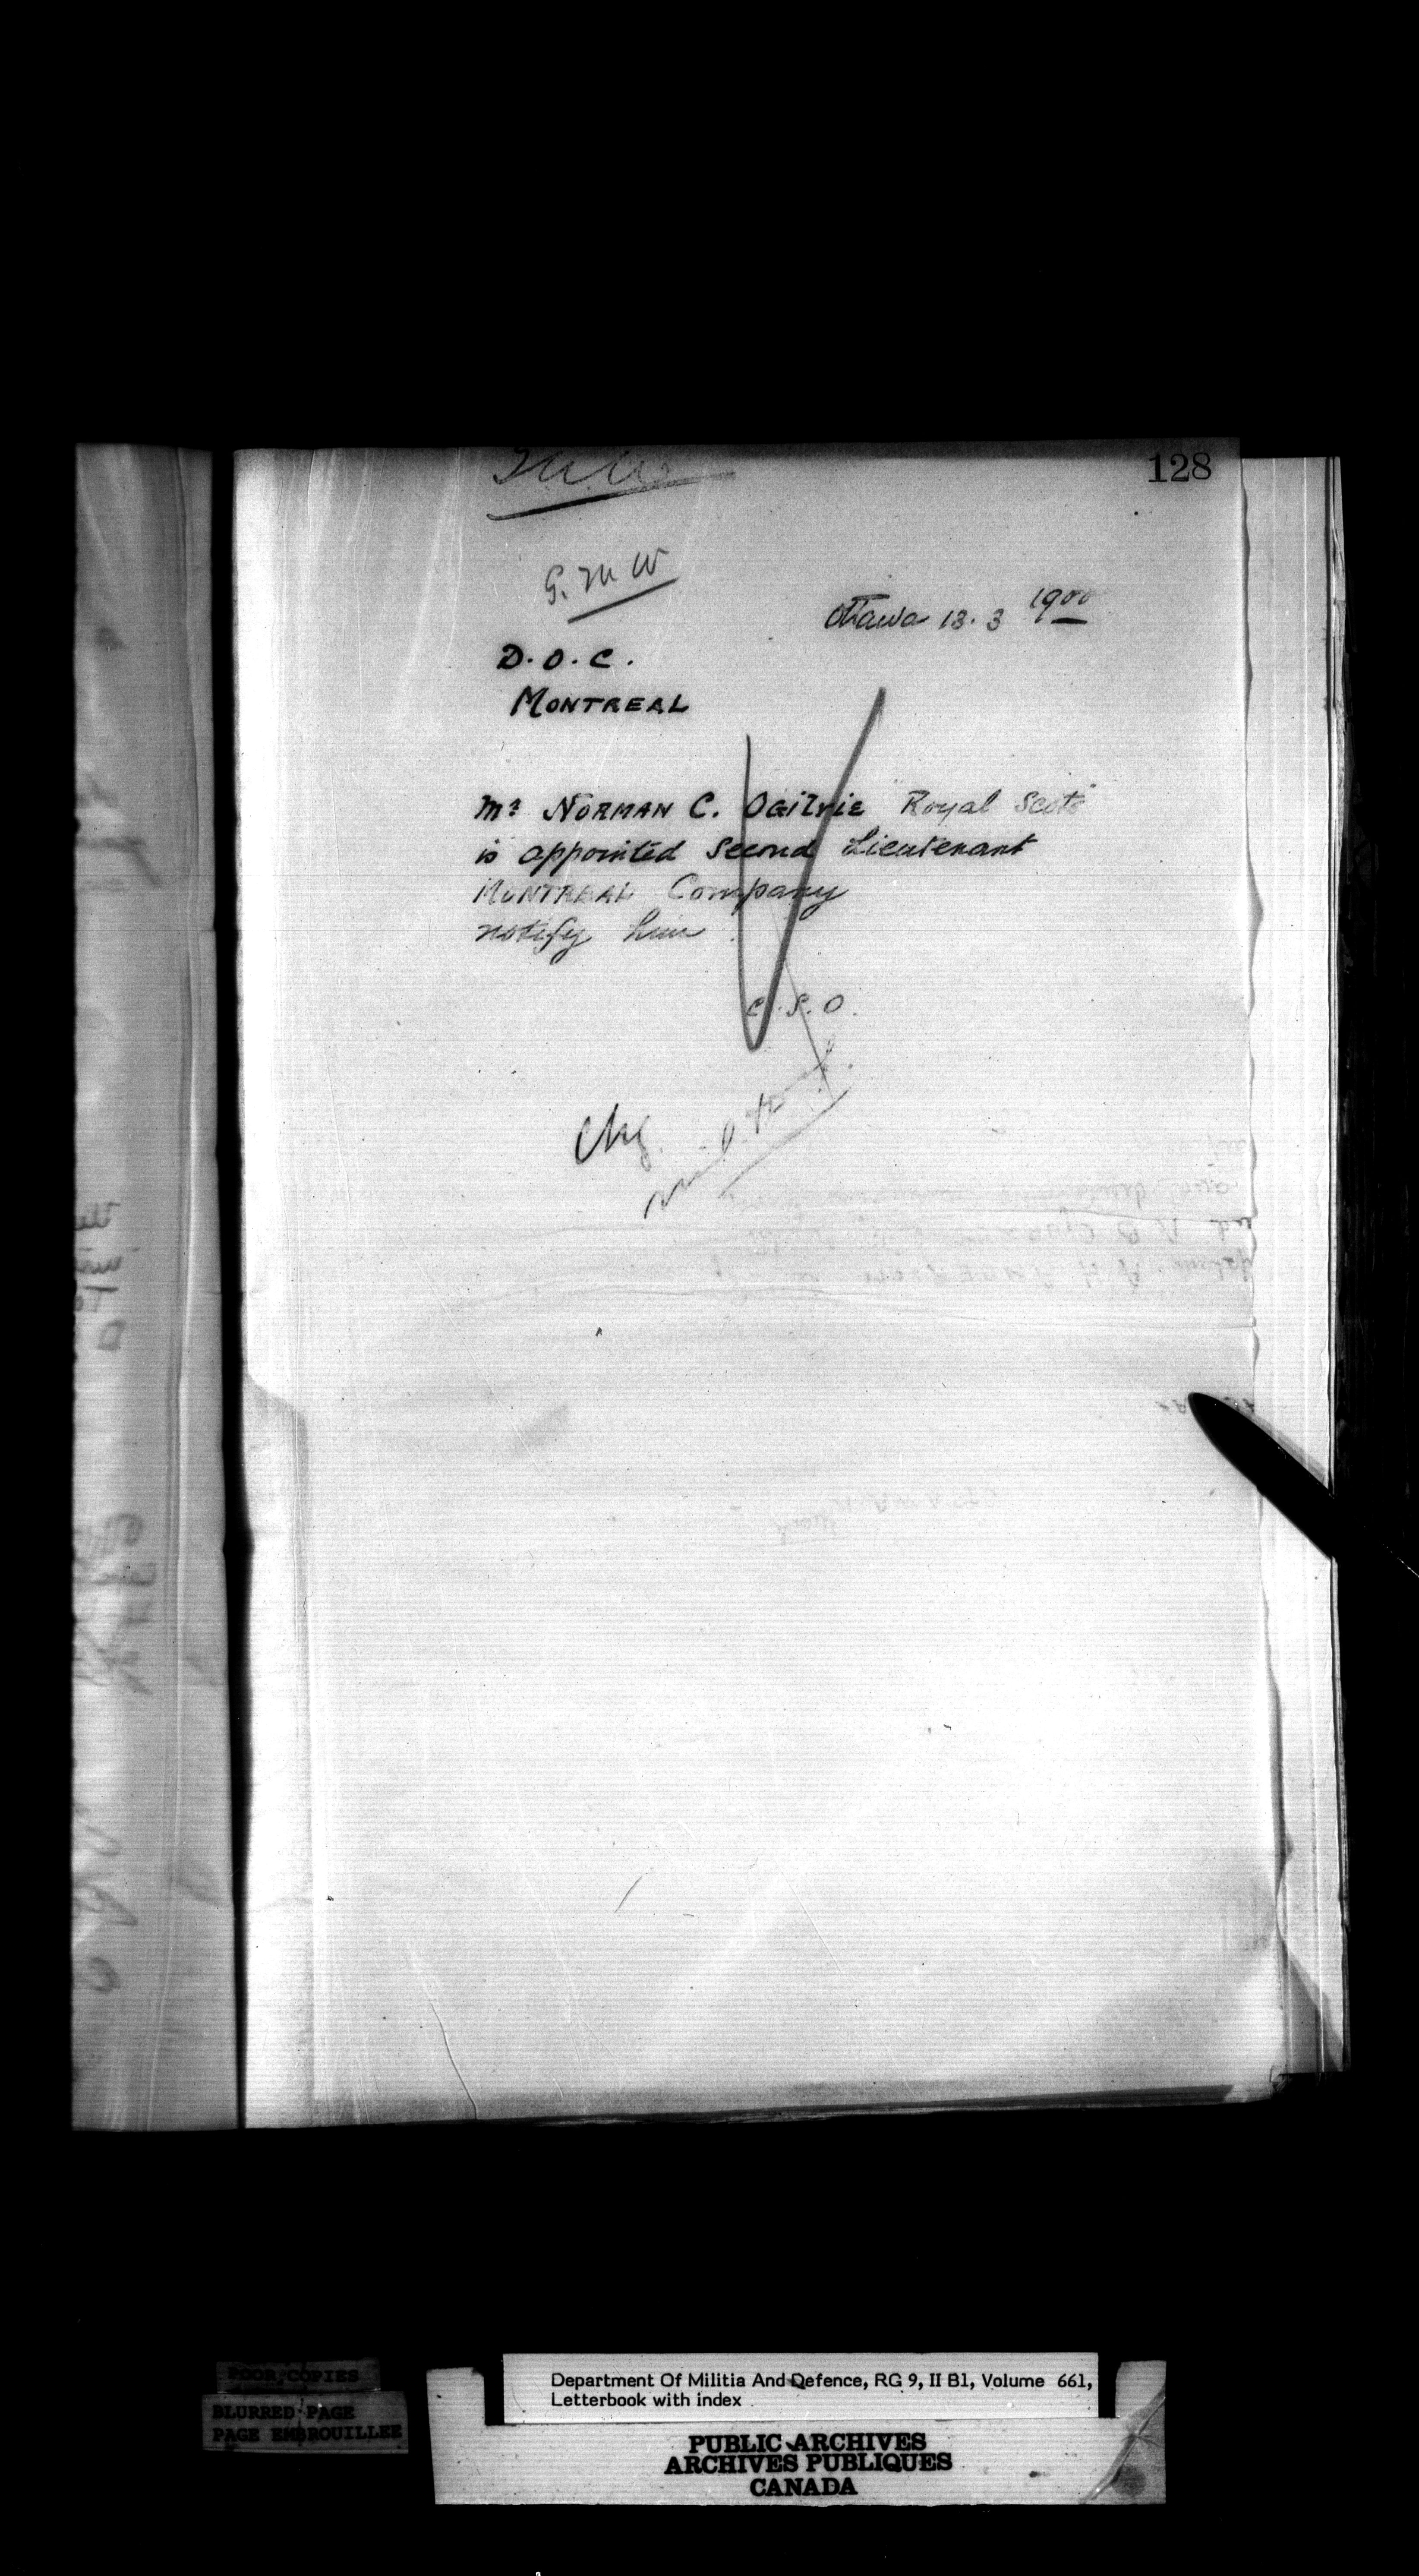 128
G. M W
Ottawa 13. 3 1900
D. O. C.
MONTREAL
Mr NORMAN C. OGilvie "Royal Scots"
is appointed Second Lieutenant
MONTREAL Company
notify him.
C. S. O.
Chg.
POOR COPIES
BLURRED PAGE
PAGE EMBROUILLEE
Department Of Militia And Defence, RG 9, II B1, Volume 661,
Letterbook with index
PUBLIC ARCHIVES
ARCHIVES PUBLIQUES
CANADA